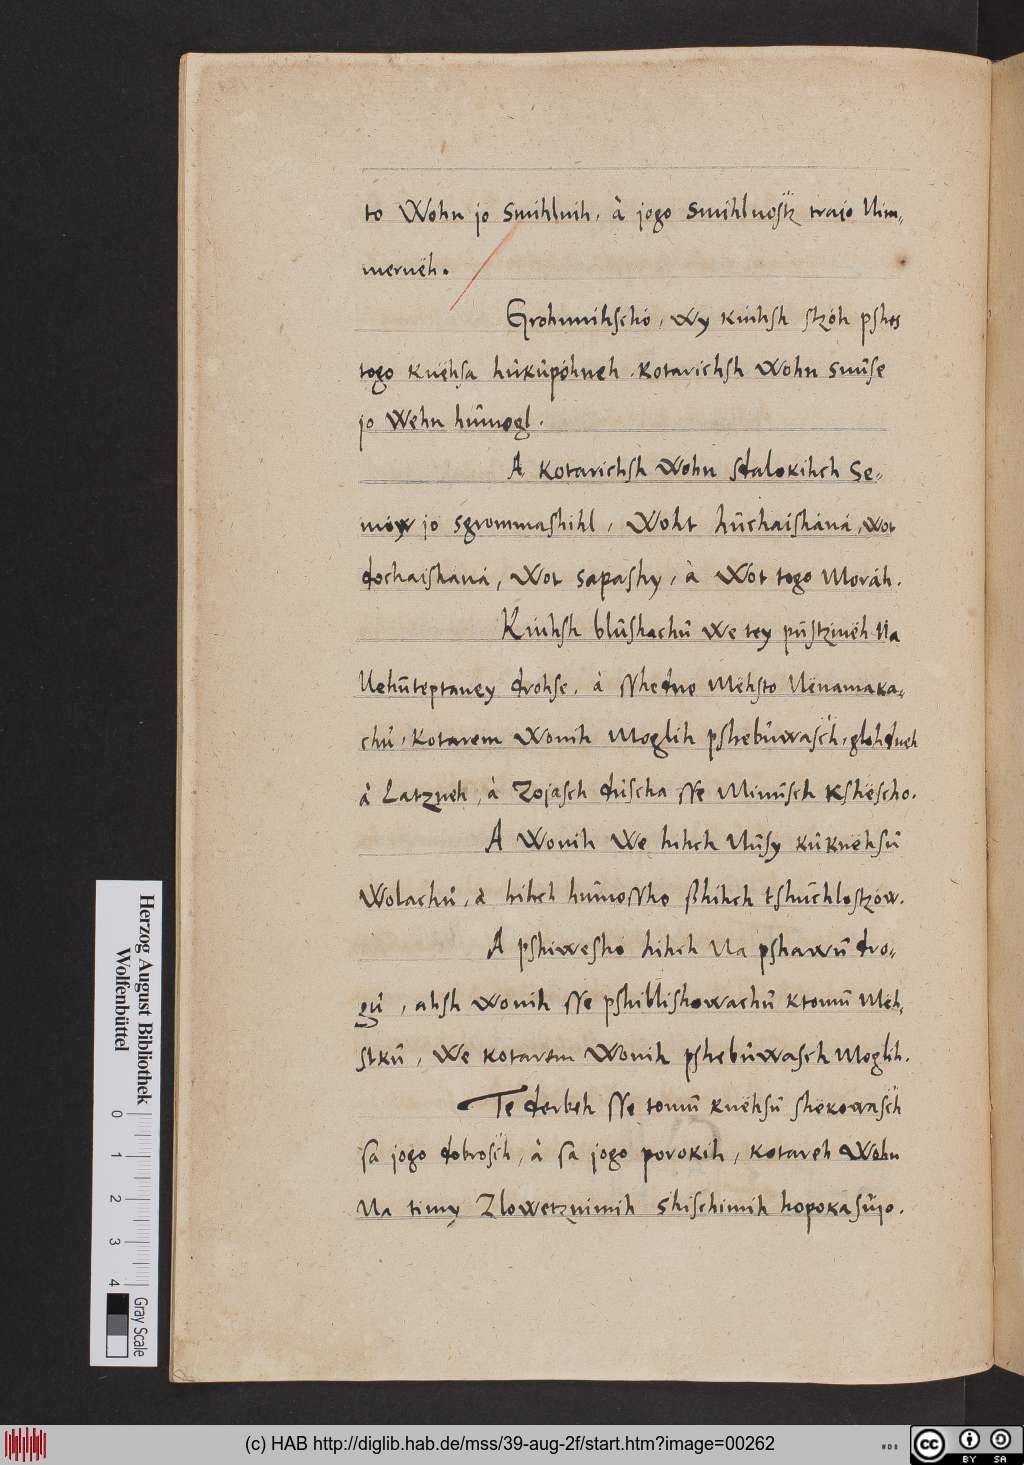 to Wohn jo Smihlnih, à jogo Smihlnosťz trajo Nim-
mernëh.
Grohmnihschó, Wy kmihsh stzóh pshes
togo knëhsa hůkůpóhneh. kotarichsh Wohn Smůse
jo Wehn hůmogl.
A kotarichsh Wohn sdalokihch Se-
mów jo sgrommashihl, Woht hůchaishàná, wot
dochaishàná, Wot sapashy, à Wót togo Moráh.
Kmihsh blůshachů We tey půstzinëh Na
Nehůteptaney drohse, à Nhedne Mëhsto Nënamaka-
chů, kotarem Wonih Moglih pshebůwasch, glohdneh
à Latzneh, à Zojasch důscha Ne Minůsch kshëscho.
A Wonih We hihch Nůsy kůknëhsů
Wolachů, à hihch hůmoNho shihch tshůchlostzów.
A pshiwesho hihch Na pshawů dro-
gů, ahsh wonih Ne pshiblishowachů ktomů Mëh-
stků, We kotarem Wonih pshebůwasch Moglih.
Te derbeh Ne tomů knëhsů shëkowasch
sa jogo dobrosch, à sa jogo porokih, kotareh Wohn
Na timy Zlowetznimih Shischimih hopokasůjo.
Herzog August Bibliothek
Wolfenbüttel
0 1 2 3 4
Gray Scale
(c) HAB http://diglib.hab.de/mss/39-aug-2f/start.htm?image=00262
WDB
cc BY SA